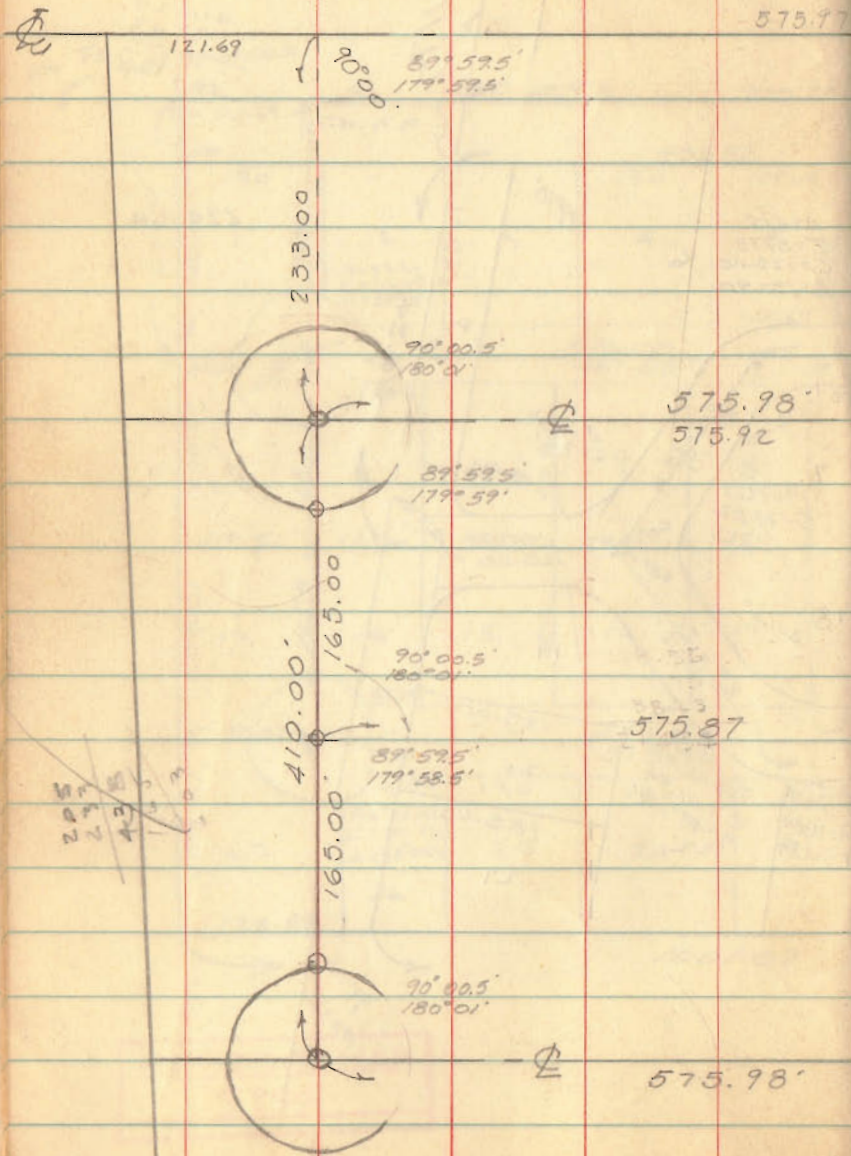 ℄
575.97
121.69
90°00'
89°59.5'
179°59.5'
233.00
90°00.5'
180°01'
℄
575.98'
575.92
89°59.5'
179°59'
165.00
410.00'
90°00.5'
180°01'
575.87
89°59.5'
179°58.5'
205
233
438
165.00'
90°00.5'
180°01'
℄
575.98'